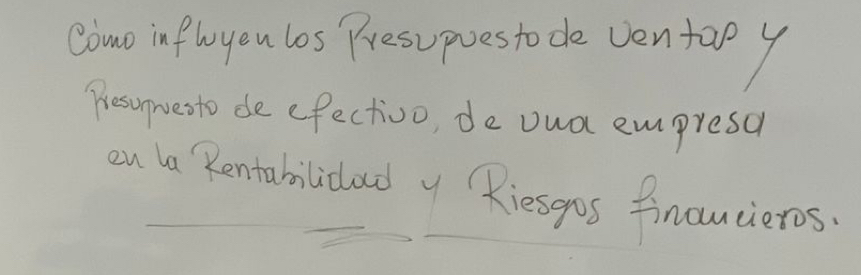 Cómo influyen los Presupuesto de ventas y
Presupuesto de efectivo, de una empresa
en la Rentabilidad y Riesgos financieros.